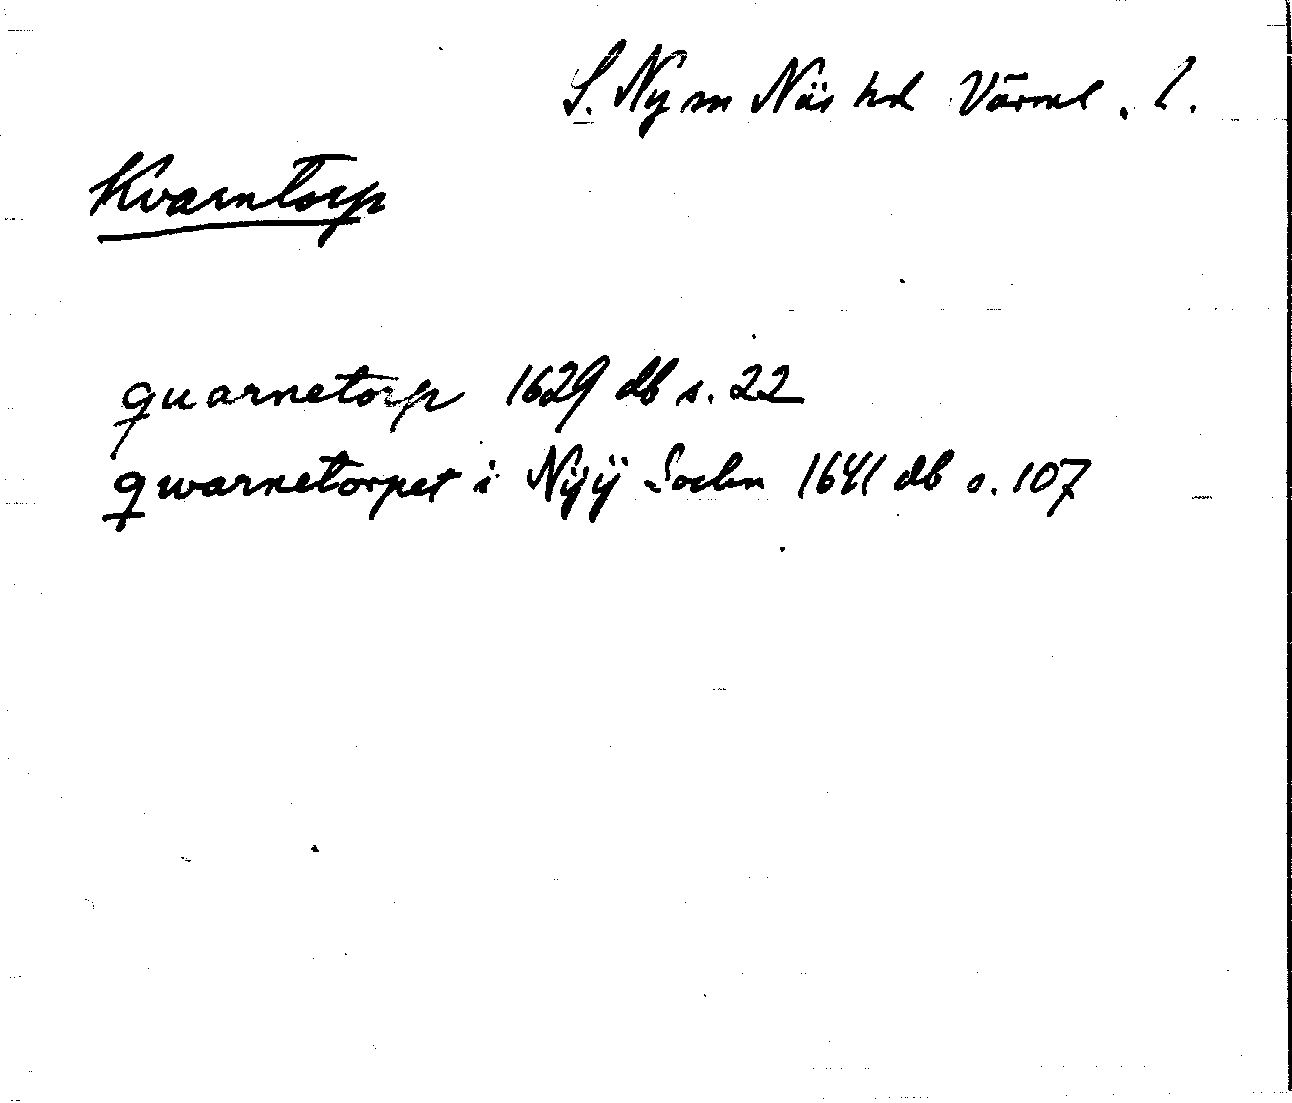 S. Ny sn Näs hd Värml. l.
Kvarntorp
quarnetorp 1629 db s. 22
qwarnetorpet i Nÿÿ Sochn 1641 db s. 107